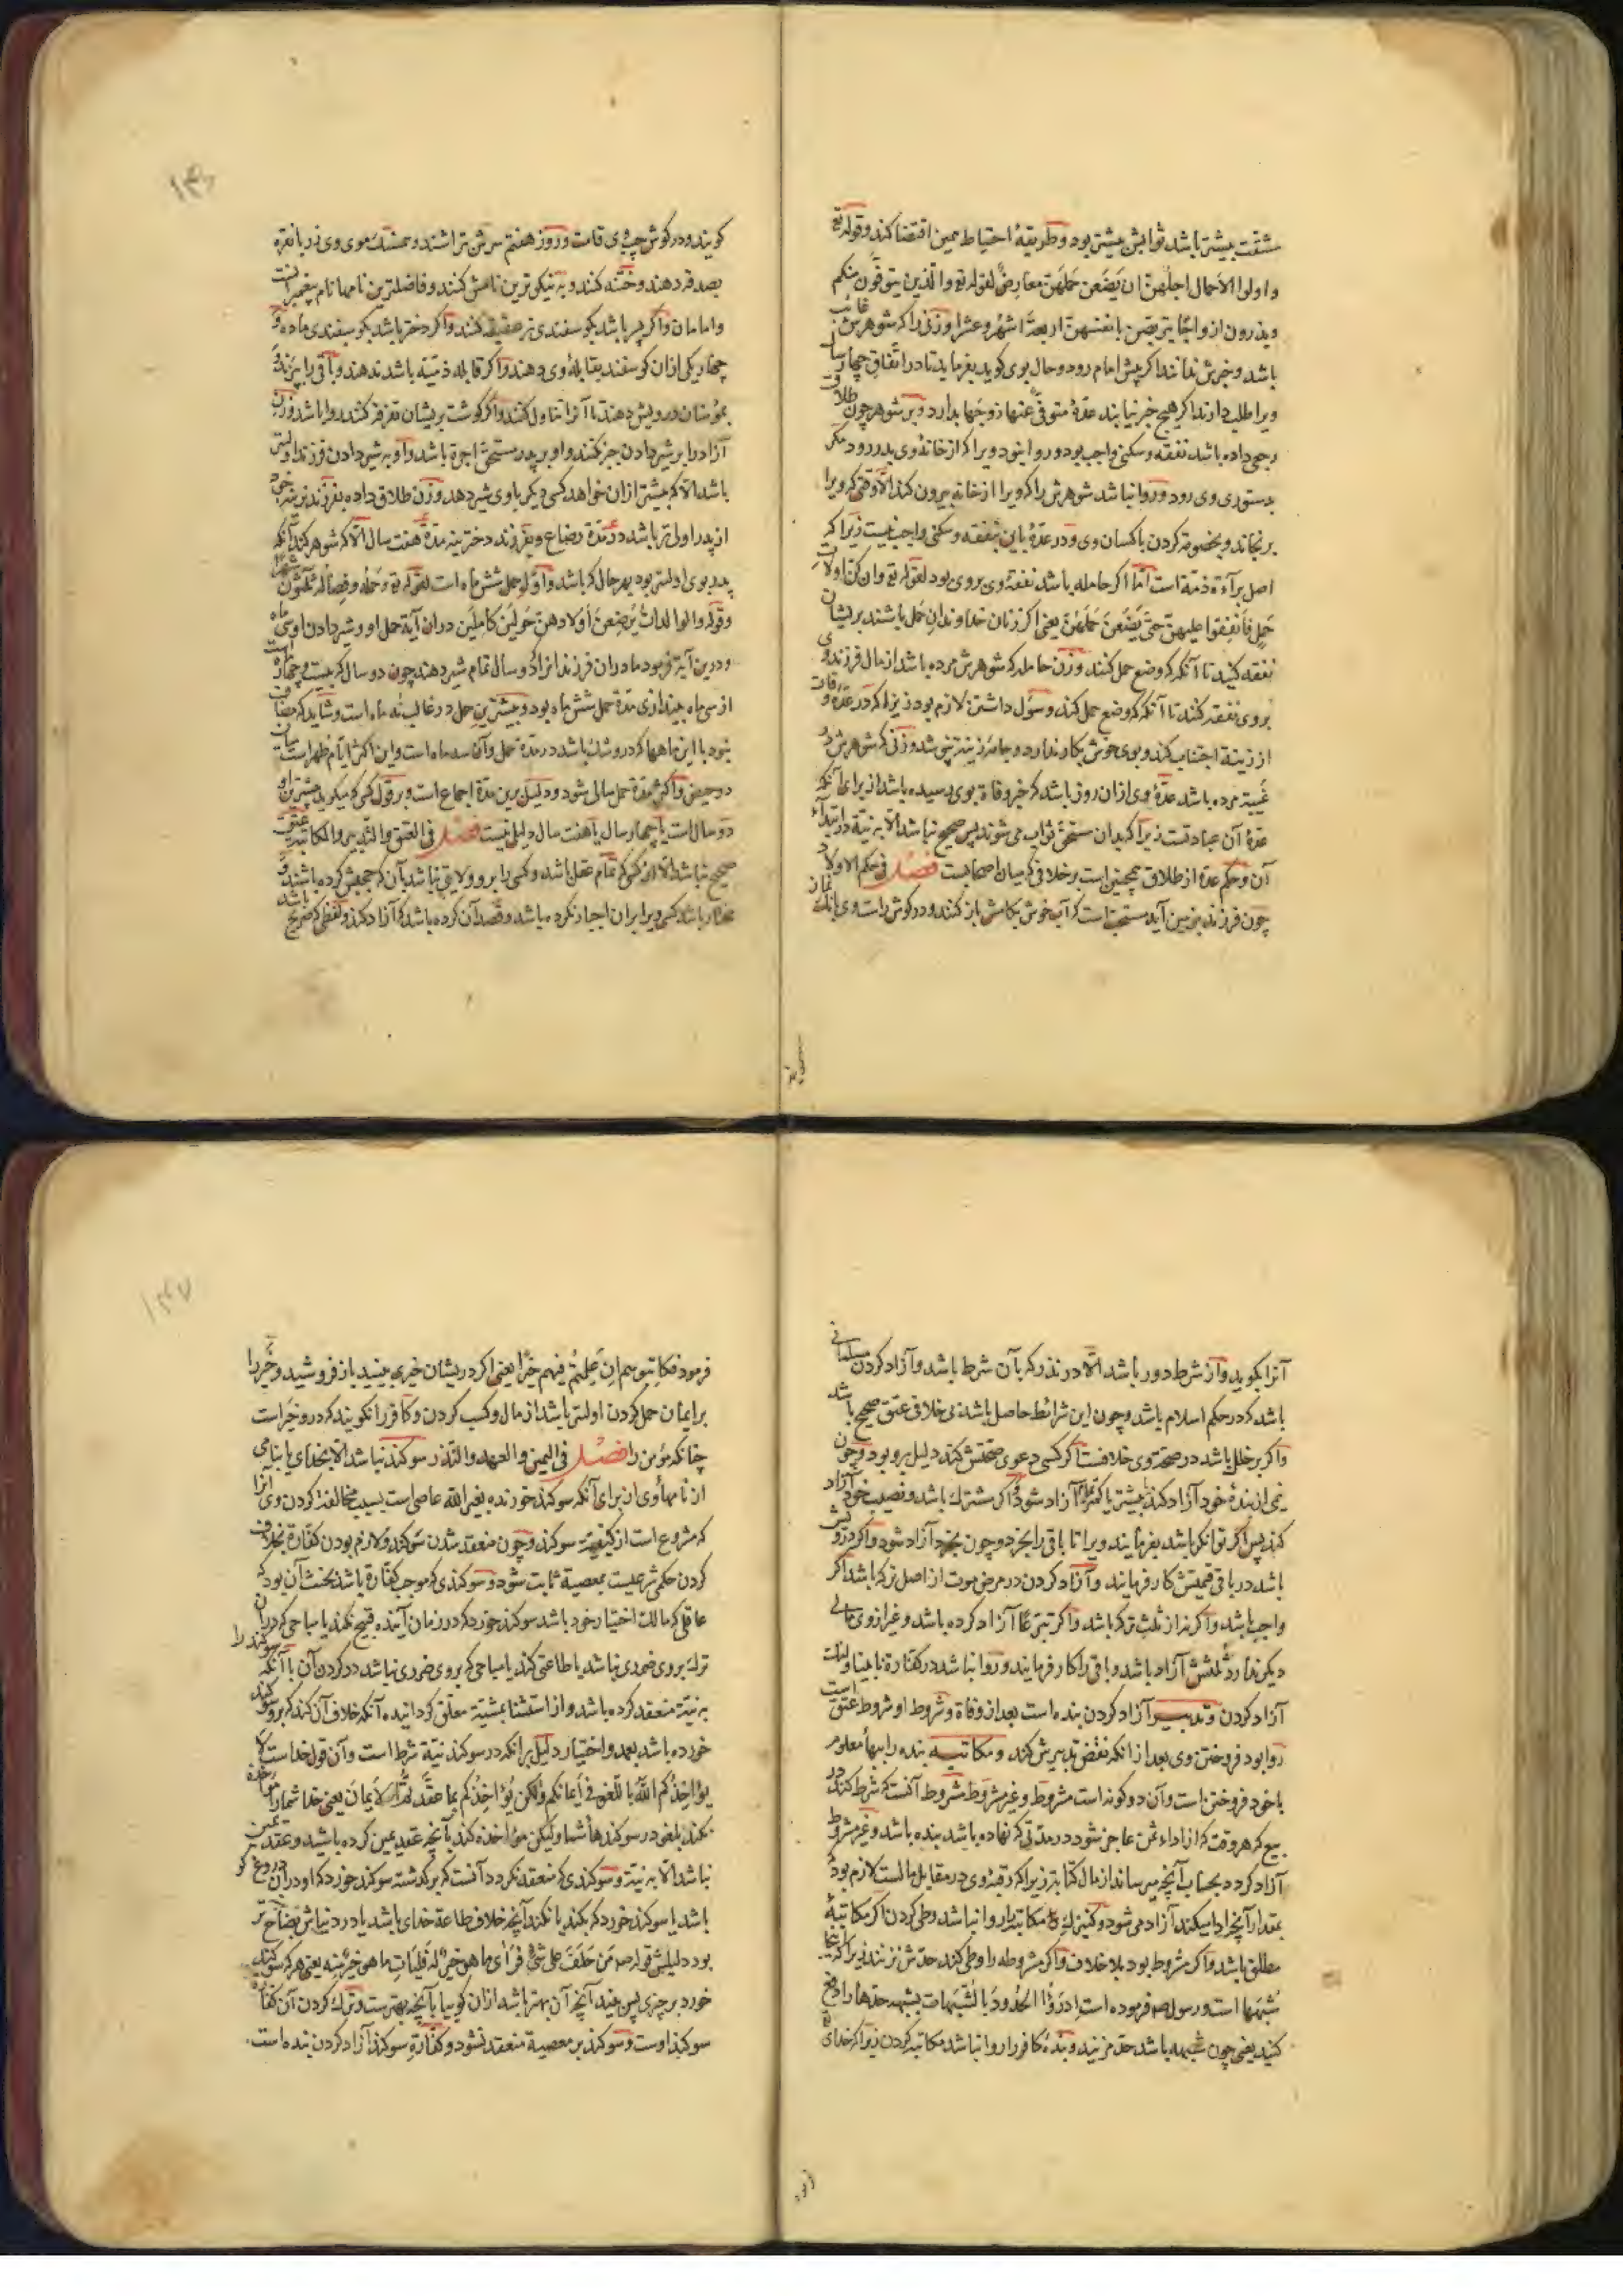 مشقت بیشتر باشد ثوابش بیشتر بود و طریقهٔ احتیاط همین اقتضا کند و قوله تع
و اولوا الاحمال اجلهن ان یضعن حملهن معارض لقوله تع والذین یتوفون منکم
ویذرون ازواجا یتربصن بانفسهن اربعة اشهر وعشرا و زنی را که شوهرش غائب
باشد و خبرش ندانند اگر پیش امام رود و حال بوی گوید بفرماید تا در آفاق چهار سال
ویرا طلب دارند اگر هیچ خبر نیابند عدهٔ متوفی عنها زوجها بدارد و بر شوهر چون طلاق
رجعی داده باشد نفقه و سکنی واجب بود و روا نبود ویرا که از خانهٔ وی بدر رود مگر
بدستوری وی رود و روا نباشد شوهرش را که ویرا از خانه بیرون کند الا وقتی که ویرا
برنجاند و بخصومة کردن با کسان وی و در عدهٔ باین نفقه و سکنی واجب نیست زیرا که
اصل برآءة ذمة است اما اگر حامله باشد نفقهٔ وی بروی بود لقوله تع وان کن اولات
حمل فانفقوا علیهن حتی یضعن حملهن یعنی اگر زنان خداوندان حمل باشند بریشان
نفقه کنید تا آنگه که وضع حمل کنند و زن حامله که شوهرش مرده باشد از مال فرزند وی
بروی نفقه کنند تا آنگه که وضع حمل کند و سول داشتن لازم بود زیرا که در عدهٔ وفات
از زینة اجتناب کند و بوی خوش بکار ندارد و جامهٔ زینة نپوشد و زنی که شوهرش در
غیبة مرده باشد عدهٔ وی از ان روز باشد که خبر وفاة بوی رسیده باشد از برای آنکه
عدهٔ آن عبادتست زیرا که بدان مستحق ثواب می شوند پس صحیح نباشد الا به نیة در ابتدآء
آن و حکم عدة از طلاق همچنین است بر خلافی که میان اصحابست فصل فی حکم الاولاد
چون فرزند بزمین آید مستحب است که آب خوش بکامش باز کنند و در گوش راست وی بانگ نماز
گویند و در گوش چپ وی قامت و روز هفتم سرش بتراشند و همسنگ موی وی زر یا نقره
بصدقه دهند و ختنه کنند و به نیکوترین نامش کنند و فاضلترین نامها نام پیغمبر است
و امامان و اگر پسر باشد بگوسفندی نر عقیقه کنند و اگر دختر باشد بگوسفندی ماده و
چهار یکی ازان گوسفند بقابلهٔ وی دهند و اگر قابله ذمیة باشد ندهند و باقی را بپزند و
بمؤمنان درویش دهند تا آنرا تناول کنند و اگر گوشت بریشان تفرقه کنند روا باشد و زن
آزاد را بر شیر دادن جبر نکنند و او بر پدر مستحق اجرة باشد و او به شیر دادن فرزند اولیتر
باشد الا که بیشتر ازان خواهد که کسی دیگر باوی شیر دهد و زن طلاق داده بفرزند نرینه خود
از پدر اولی تر باشد در مدة رضاع و بفرزند دخترینه مدة هفت سال الا که شوهر کند آنگه
پدر بوی اولیتر بود بهر حال که باشد و اول حمل شش ماه است لقوله تع و حمله و فصاله ثلثون شهرا
وقوله والوالدات یرضعن اولادهن حولین کاملین دران آیة حمل او و شیر دادن او سی ماه
و درین آیة فرمود مادران فرزندانرا دو سال تمام شیر دهند چون دو سال که بیست و چهار ماه است
از سی ماه بیندازی مدة حمل شش ماه بود و بیشترین حمل در غالب نه ماه است و شاید که مضاف
شود با این ماهها که دروشک باشد در مدة حمل و آن سه ماه است و این اکثر ایام طهر است میان
دو حیض و اکثر مدة حمل سالی شود و دلیل برین مدة اجماع است و بر قول کسی که میگوید بیشترین او
دو سال است یا چهار سال یا هفت سال دلیلی نیست فصل فی العتق والتدبیر والمکاتبة عتق
صحیح نباشد الا از کسی که تمام عقل باشد و کسی را برو ولایتی نباشد بآن که حجرش کرده باشند و
مختار باشد کسی ویرا بران اجبار نکرده باشد و قصد آن کرده باشد که آزاد کند و لفظی که صریح باشد
آنرا بگوید و از شرط دور باشد الا در نذر که بآن شرط باشد و آزاد کردن مسلمانی
باشد که در حکم اسلام باشد و چون این شرائط حاصل باشد بی خلافی عتق صحیح باشد
و اگر بر خلل باشد در صحة وی خلافست اگر کسی دعوی صحتش کند دلیل برو بود و چون
نیمی از بندهٔ خود آزاد کند یا بیشتر یا کمتر تمام آزاد شود و اگر مشترک باشد و نصیب خود آزاد
کند پس اگر توانگر باشد بفرمایند ویرا تا باقی را بخرد و چون بخرد آزاد شود و اگر درویش
باشد در باقی قیمتش کار فرمایند و آزاد کردن در مرض موت از اصل ترکه باشد اگر
واجب باشد و اگر نه از ثلث ترکه باشد و اگر تبرعا آزاد کرده باشد و غیر از وی مالی
دیگر ندارد ثلثش آزاد باشد و باقی را کار فرمایند و روا نباشد در کفارة یا
آزاد کردن و تدبیر آزاد کردن بنده است بعد از وفاة و شروط او شروط عتق است
روا بود فروختن وی بعد از انکه نقض تدبیرش کند و مکاتبه بنده را ببهاء معلوم
با خود فروختن است و آن دو گونه است مشروط و غیر مشروط مشروط آنست که شرط کند در
بیع که هر وقت که از اداء ثمن عاجز شود در مدتی که نهاده باشد بنده باشد و غیر مشروط
آزاد گردد بحساب آنچه میرساند از مال کتابة زیرا که رقبهٔ وی در مقابل مالست لازم بود
بمقدار آنچه ادا میکند آزاد می شود و کنیزک مکاتبه را روا نباشد وطی کردن اگر مکاتبهٔ
مطلق باشد و اگر مشروط بود بلا خلاف و اگر مشروطه را وطی کند حدش نزنند زیرا که اینجا
شبهها است و رسول صم فرموده است ادرؤا الحدود بالشبهات بشبهه حدها را دفع
کنید یعنی چون شبهه باشد حد مزنید و بندهٔ کافر را روا نباشد مکاتبه کردن زیرا که خدای تع
فرمود فکاتبوهم ان علمتم فیهم خیرا یعنی اگر دریشان خیری بینید باز فروشید و خیر را
بر ایمان حمل کردن اولیتر باشد از مال و کسب کردن و کافر را نگویند که درو خیر است
چنانکه مؤمن را فصل فی الیمین والعهد والنذر سوگند نباشد الا بخدای یا بنامی
از نامهاء وی از برای آنکه سوگند خورنده بغیر الله عاصی است بسبب مخالفة کردن وی آنرا
که مشروع است از کیفیة سوگند و چون منعقد شدن سوگند و لازم بودن کفارة بخلاف
کردن حکمی شرعیست بمعصیة ثابت نشود و سوگندی که موجب کفارة باشد بحنث آن بود که
عاقلی که مالک اختیار خود باشد سوگند خورد که در زمان آینده قبیح نکند یا مباحی که در آن
ترک بروی ضرری نباشد یا طاعتی کند یا مباحی که بروی ضرری نباشد در کردن آن با آنکه سوگند را
به نیة منعقد کرده باشد و از استثنا بمشیة معلق گردانیده آنگه خلاف آن کند که برو سوگند
خورده باشد بعمد و اختیار دلیل برانکه در سوگند نیة شرط است و آن قول خداست لا
یؤاخذکم الله باللغو فی ایمانکم ولکن یؤاخذکم بما عقدتم الایمان یعنی خدا شما را مؤاخذه
نکند بلغو در سوگندهاء شما ولیکن مؤاخذه کند بآنچه عقد یمین کرده باشید و عقد یمین
نباشد الا به نیة و سوگندی که منعقد نگردد آنست که بر گذشته سوگند خورد که او دران دروغ گو
باشد یا سوگند خورد که بکند یا نکند آنچه خلاف طاعة خدای باشد یا در دنیاش بصلاح تر
بود دلیلش قوله صم من حلف علی شئ فرای ما هو خیر له فلیات ما هو خیر منه یعنی هر که سوگند
خورد بر چیزی پس بیند آنچه آن بهتر باشد ازان گو بیا بآنچه بهترست و ترک کردن آن کفارة
سوگند اوست و سوگند بر معصیة منعقد نشود و کفارة سوگند آزاد کردن بنده است